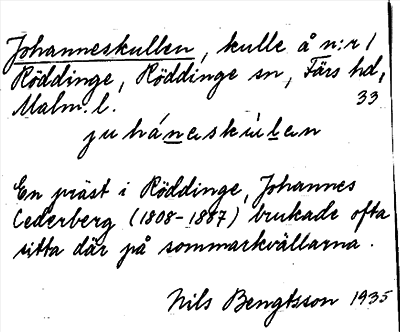 Johanneskullen, kulle å n:r 1
Röddinge, Röddinge sn, Färs hd,
Malm. l. 33
juháneskùlen
En präst i Röddinge, Johannes
Cederberg (1808-1887) brukade ofta
sitta där på sommarkvällarna.
Nils Bengtsson 1935